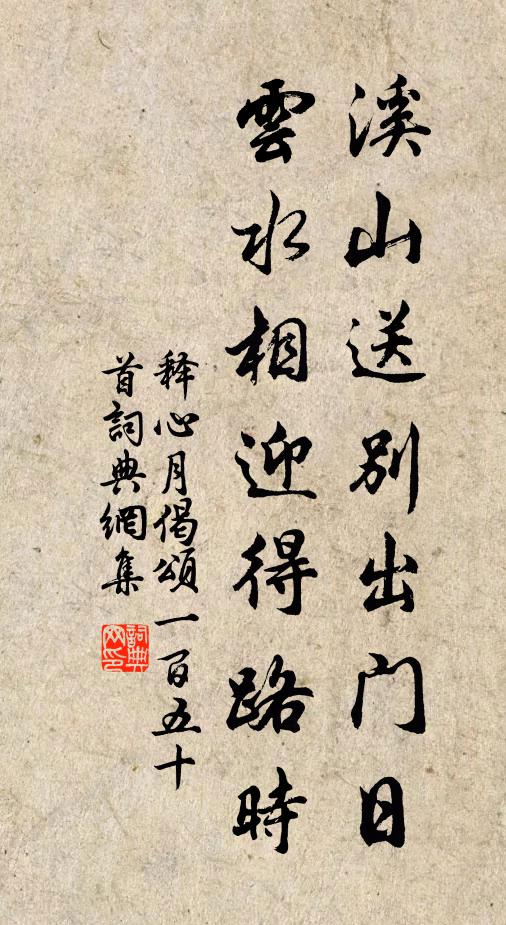 溪山送别出门日
雲水相迎得路時
释心月偈頌一百五十
首詞典網集
詞典网印